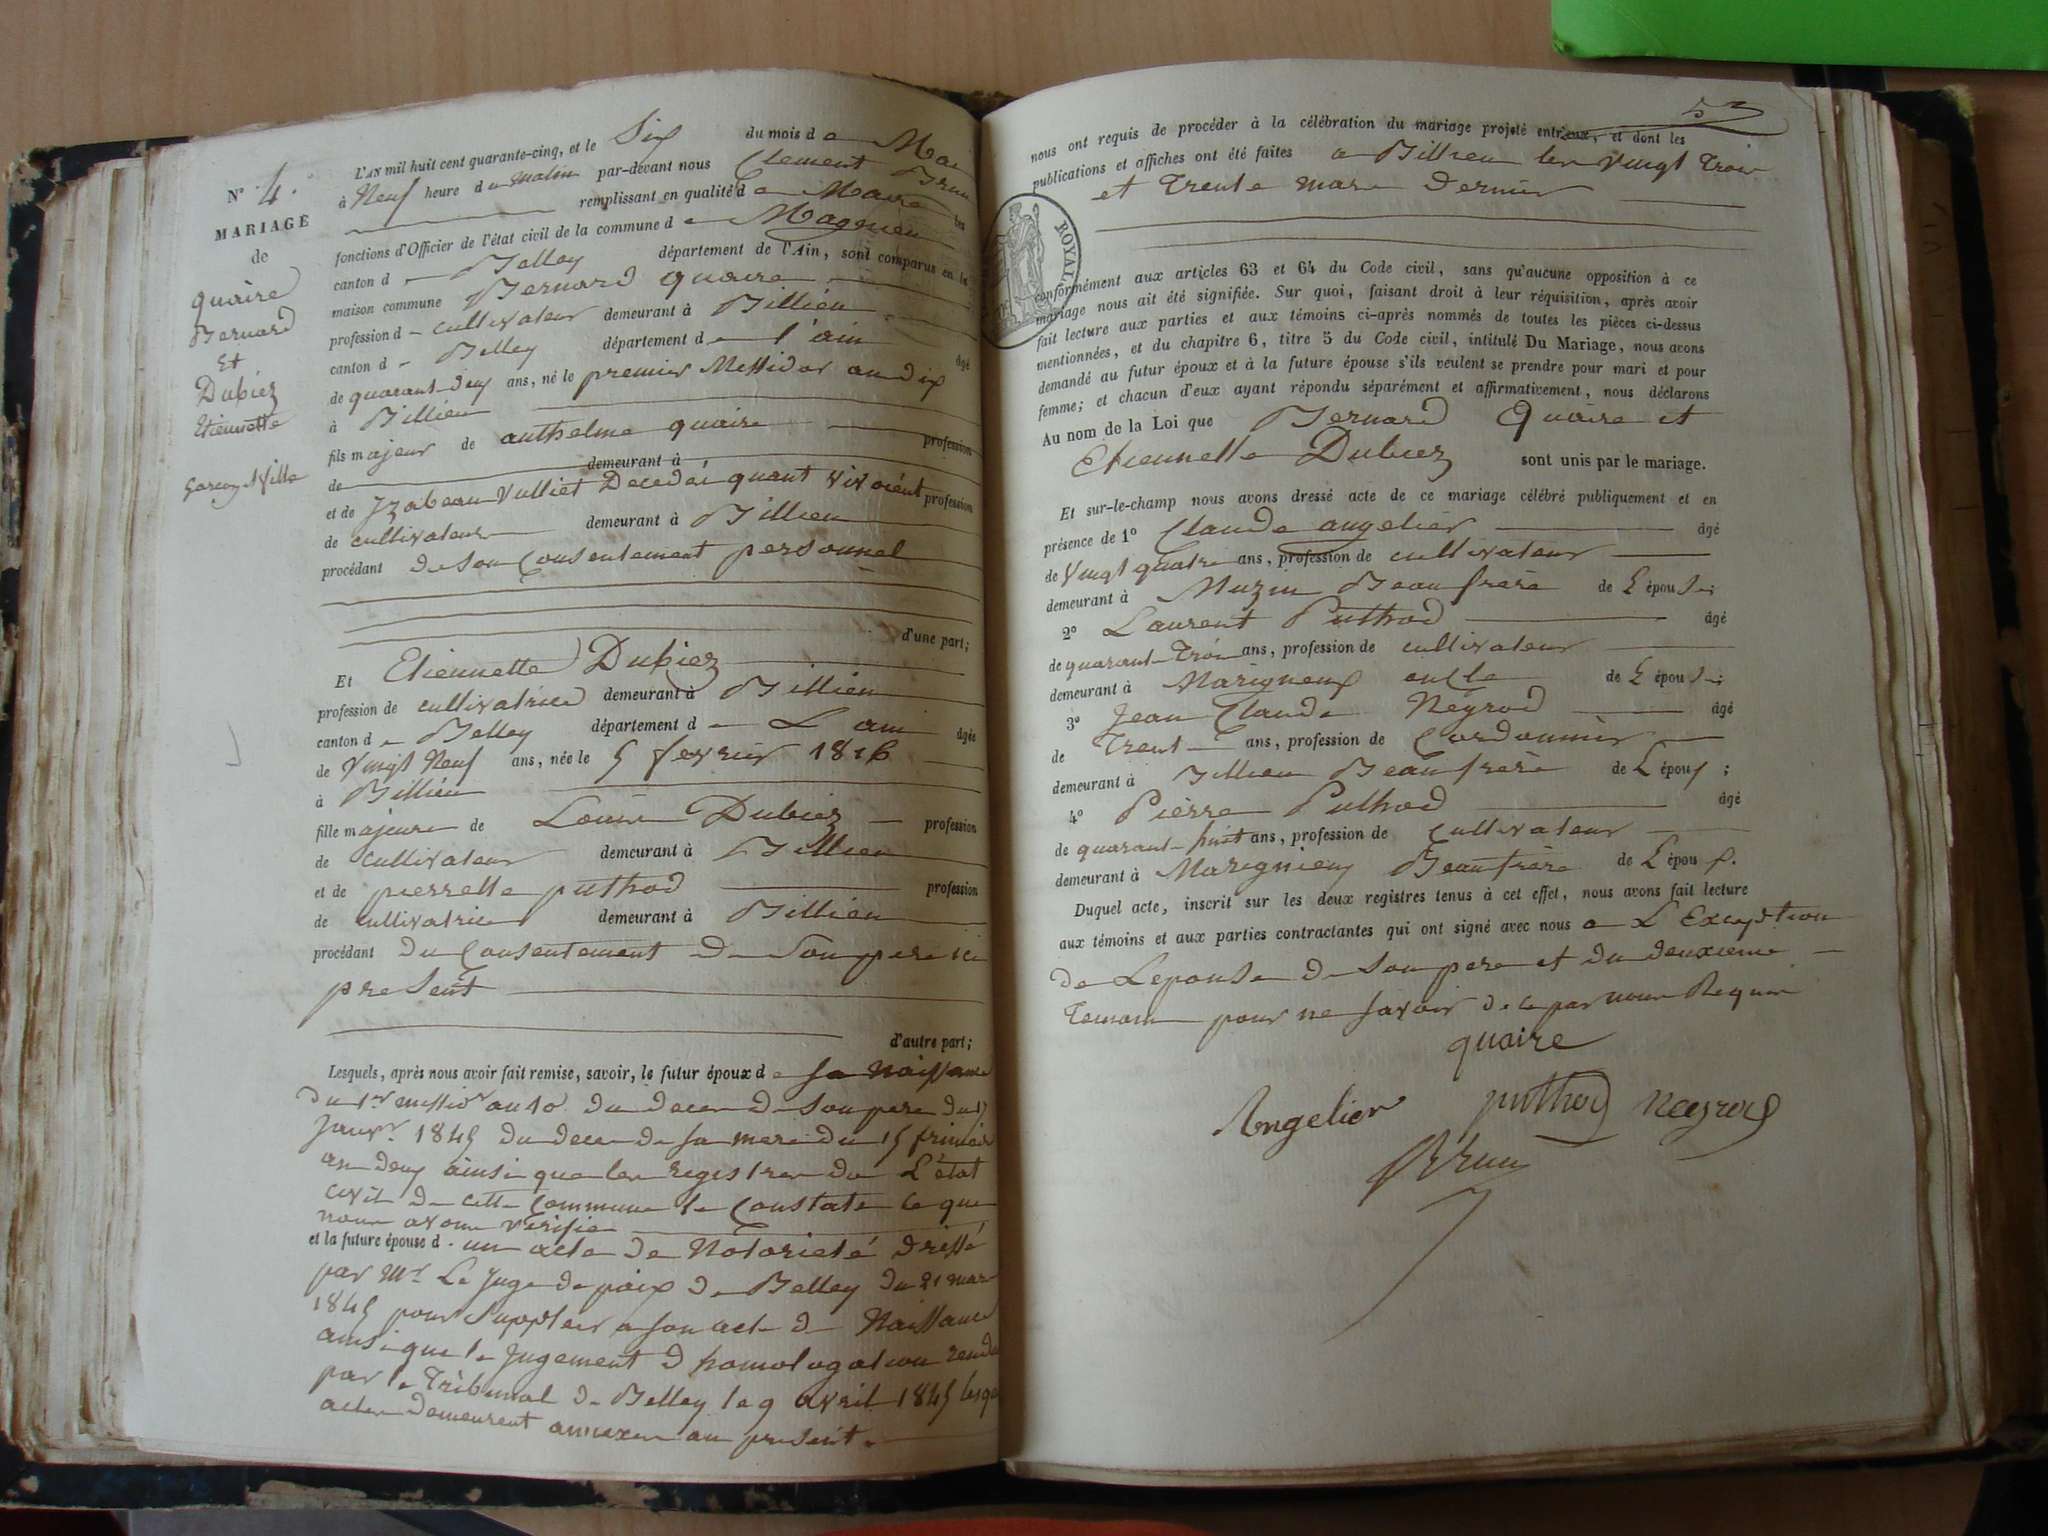 N° 4.
MARIAGE
de
quaire
Bernard
Et
Dubiez
Etiennette
garçon & fille
L'AN mil huit cent quarante-cinq, et le Six du mois d e Mai
à Neuf heure du matin par-devant nous Clement Brun
remplissant en qualité d e Maire les
fonctions d'Officier de l'état civil de la commune d e Magnieu
canton d e Belley département de l'Ain, sont comparus en la
maison commune Bernard quaire
profession d e cultivateur demeurant à Billieu
canton d e Belley département d e l'ain âgé
de quarant deux ans, né le premier Messidor an dix
à Billieu
fils majeur de anthelme quaire profession
de demeurant à
et de Izabeau Vulliet Decedés quant vivoient profession
de cultivateurs demeurant à Billieu
procédant de son Consentement personnel
d'une part;
Et Etiennette Dubiez
profession de cultivatrice demeurant à Billieu
canton d e Belley département d e L'ain âgée
de Vingt Neuf ans, née le 5 fevrier 1816
à Billieu
fille majeure de Louis Dubiez profession
de cultivateur demeurant à Billieu
et de pierrette puthod profession
de cultivatrice demeurant à Billieu
procédant du Consentement de Son pere ici
present
d'autre part;
Lesquels, après nous avoir fait remise, savoir, le futur époux d e sa Naissance
du 1er messidor an 10 du deces de Son pere du 17
Janvr 1845 du deces de sa mere du 15 frimaire
an deux ainsi que les registres de L'état
civil de cette Commune le Constate ce que
nous avons verifié
et la future épouse d. un acte de Notorieté dressé
par Mr Le Juge de paix de Belley du 21 mars
1845 pour Suppleer a son acte de Naissance
ainsi que le Jugement d'homologation rendu
par le Tribunal de Belley le 9 avril 1845 lesquels
actes demeurent annexes au present.
53
nous ont requis de procéder à la célébration du mariage projeté entr'eux, et dont les
publications et affiches ont été faites a Billieu les vingt Trois
et Trente mars dernier
ROYAL
conformément aux articles 63 et 64 du Code civil, sans qu'aucune opposition à ce
mariage nous ait été signifiée. Sur quoi, faisant droit à leur réquisition, après avoir
fait lecture aux parties et aux témoins ci-après nommés de toutes les pièces ci-dessus
mentionnées, et du chapitre 6, titre 5 du Code civil, intitulé Du Mariage, nous avons
demandé au futur époux et à la future épouse s'ils veulent se prendre pour mari et pour
femme; et chacun d'eux ayant répondu séparément et affirmativement, nous déclarons
Au nom de la Loi que Bernard Quaire et
Etiennette Dubiez sont unis par le mariage.
Et sur-le-champ nous avons dressé acte de ce mariage célébré publiquement et en
présence de 1° Claude angelier âgé
de Vingt quatre ans, profession de cultivateur
demeurant à Muzin Beau frère de L'épouse;
2° Laurent Puthod âgé
de quarant Trois ans, profession de cultivateur
demeurant à Marignieux oncle de L'épouse;
3° Jean Claude Neyrod âgé
de Trent ans, profession de Cordonnier
demeurant à Billieu Beau frère de L'époux;
4° Pierre Puthod âgé
de quarant huit ans, profession de Cultivateur
demeurant à Marignieux Beau frère de L'époux.
Duquel acte, inscrit sur les deux registres tenus à cet effet, nous avons fait lecture
aux témoins et aux parties contractantes qui ont signé avec nous a L'Exception
de L'epouse de Son pere et du deuxieme
Temoin pour ne savoir de ce par nous Requis
quaire
Angelier puthod neyrod
Brun